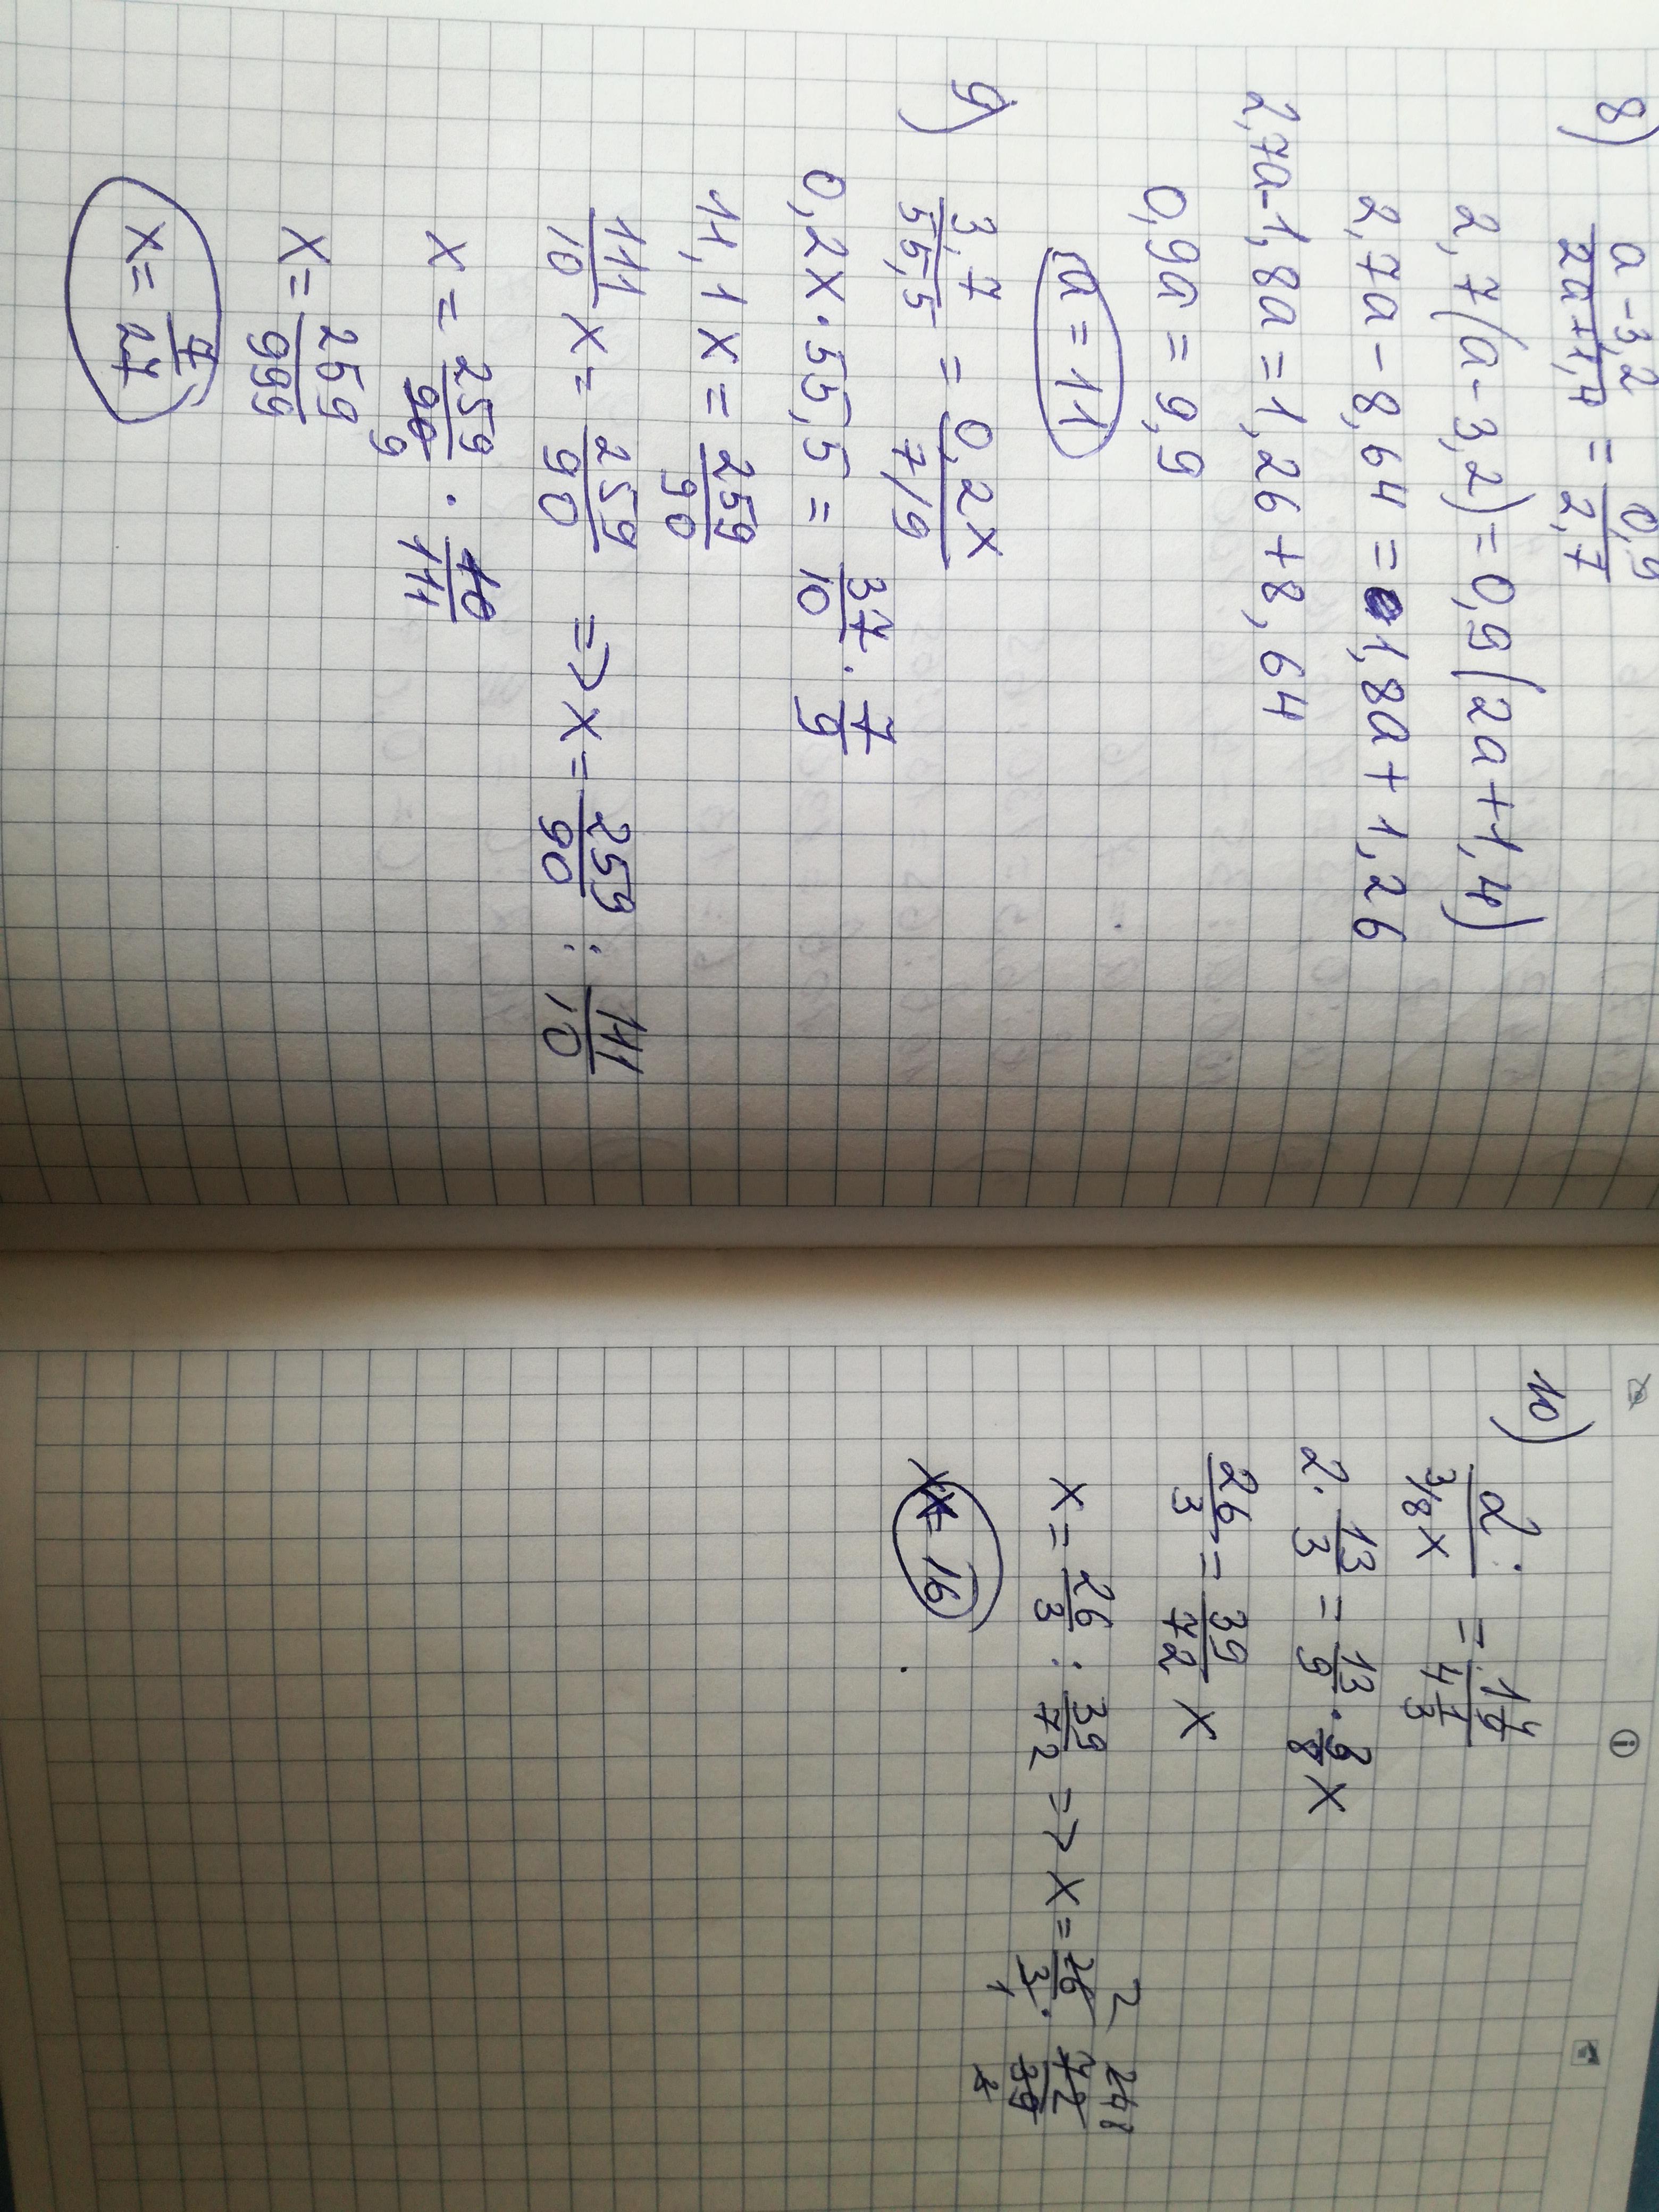 8) (a-3,2)/(2a+1,4) = 0,9/2,7
2,7(a-3,2)=0,9(2a+1,4)
2,7a-8,64=1,8a+1,26
2,7a-1,8a=1,26+8,64
0,9a=9,9
a=11
9) 3,7/55,5 = 0,2x/(7/9)
0,2x·55,5= 37/10 · 7/9
11,1x= 259/90
111/10 x= 259/90 => x= 259/90 : 111/10
x= 259/90 9 · 10/111
x= 259/999
x= 7/27
10) 2/(3/8 x) =
2· 13/3 = 13/9 · 3/8 x
26/3 = 39/72 x
x= 26/3 : 39/72 => x= 26/3 · 72/39
x= 16